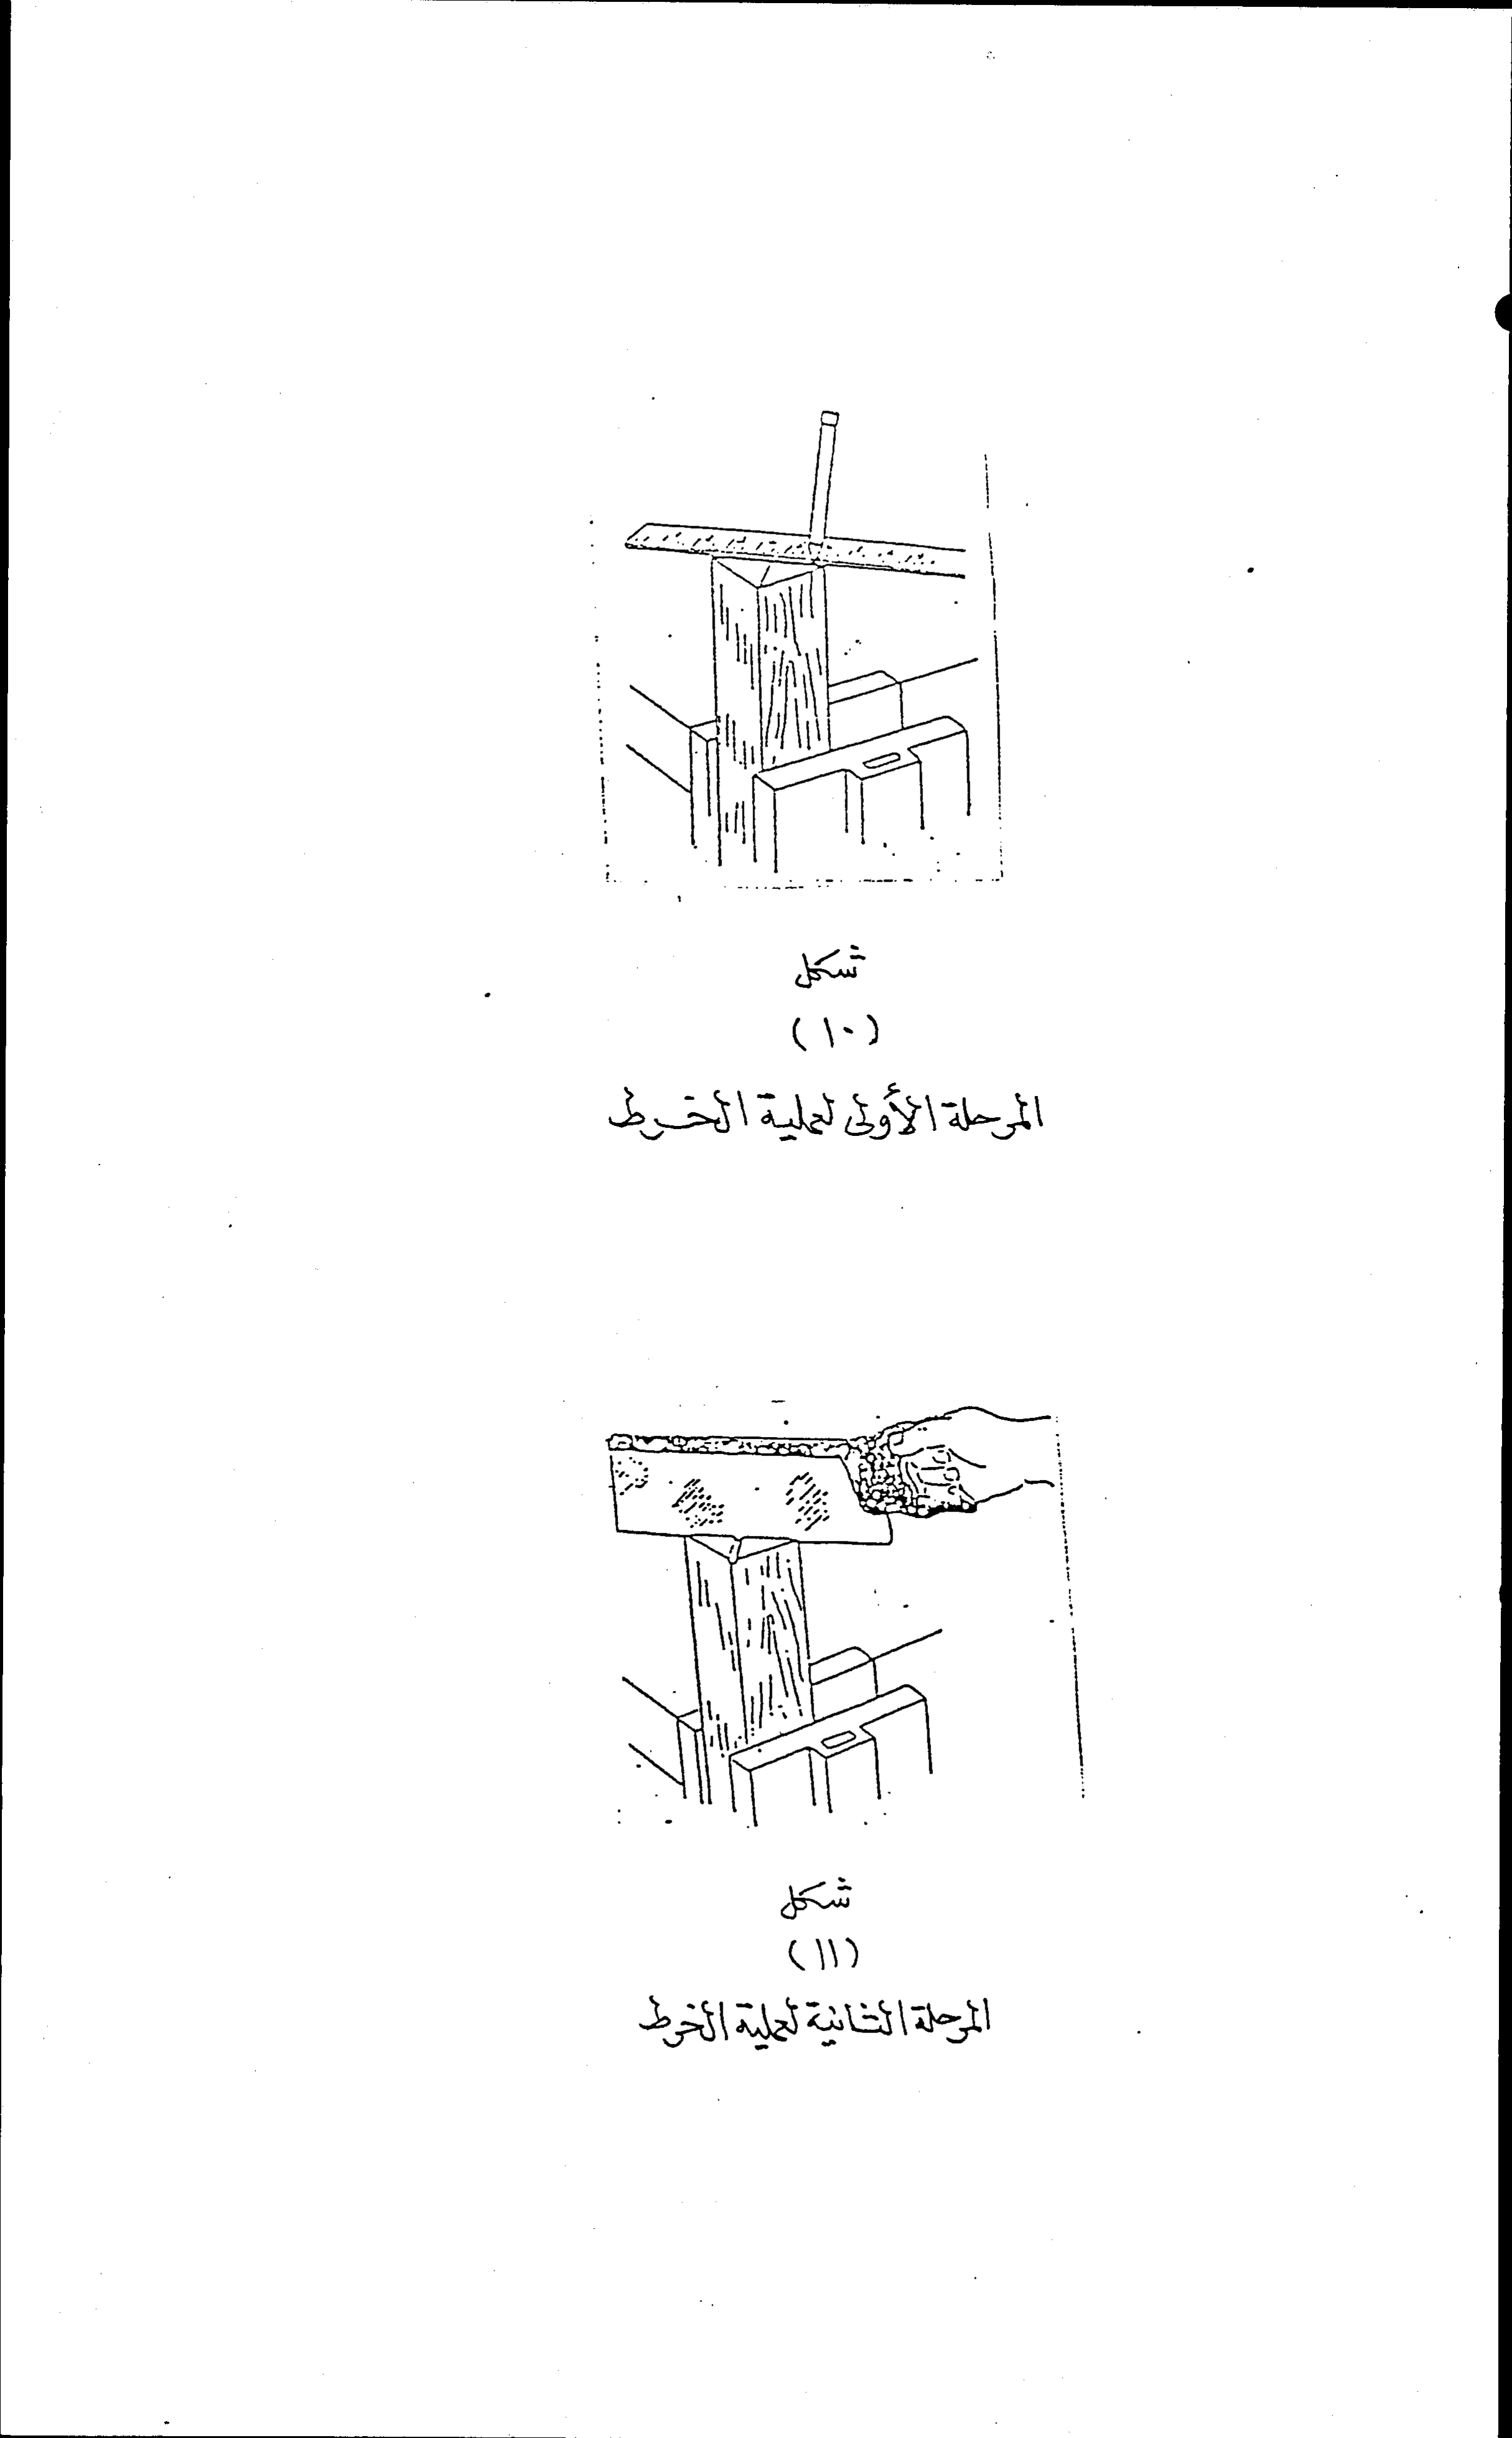 شكل
(١٠)
المرحلة الأولى لعملية الخرط
شكل
(١١)
المرحلة الثانية لعملية الخرط